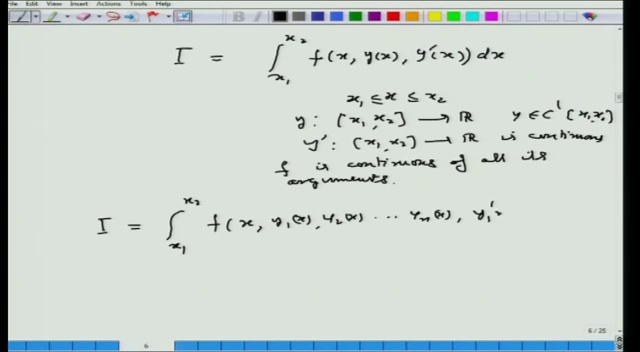 File Edit View Insert Actions Tools Help
I = ∫_{x₁}^{x₂} f(x, y(x), y'(x)) dx
x₁ ≤ x ≤ x₂
y : [x₁, x₂] → ℝ y ∈ C' [x₁, x₂]
y' : [x₁, x₂] → ℝ is continuous
f is continuous of all its
arguments.
I = ∫_{x₁}^{x₂} f(x, y₁(x), y₂(x) ... yₙ(x), y₁'
6 / 25
6